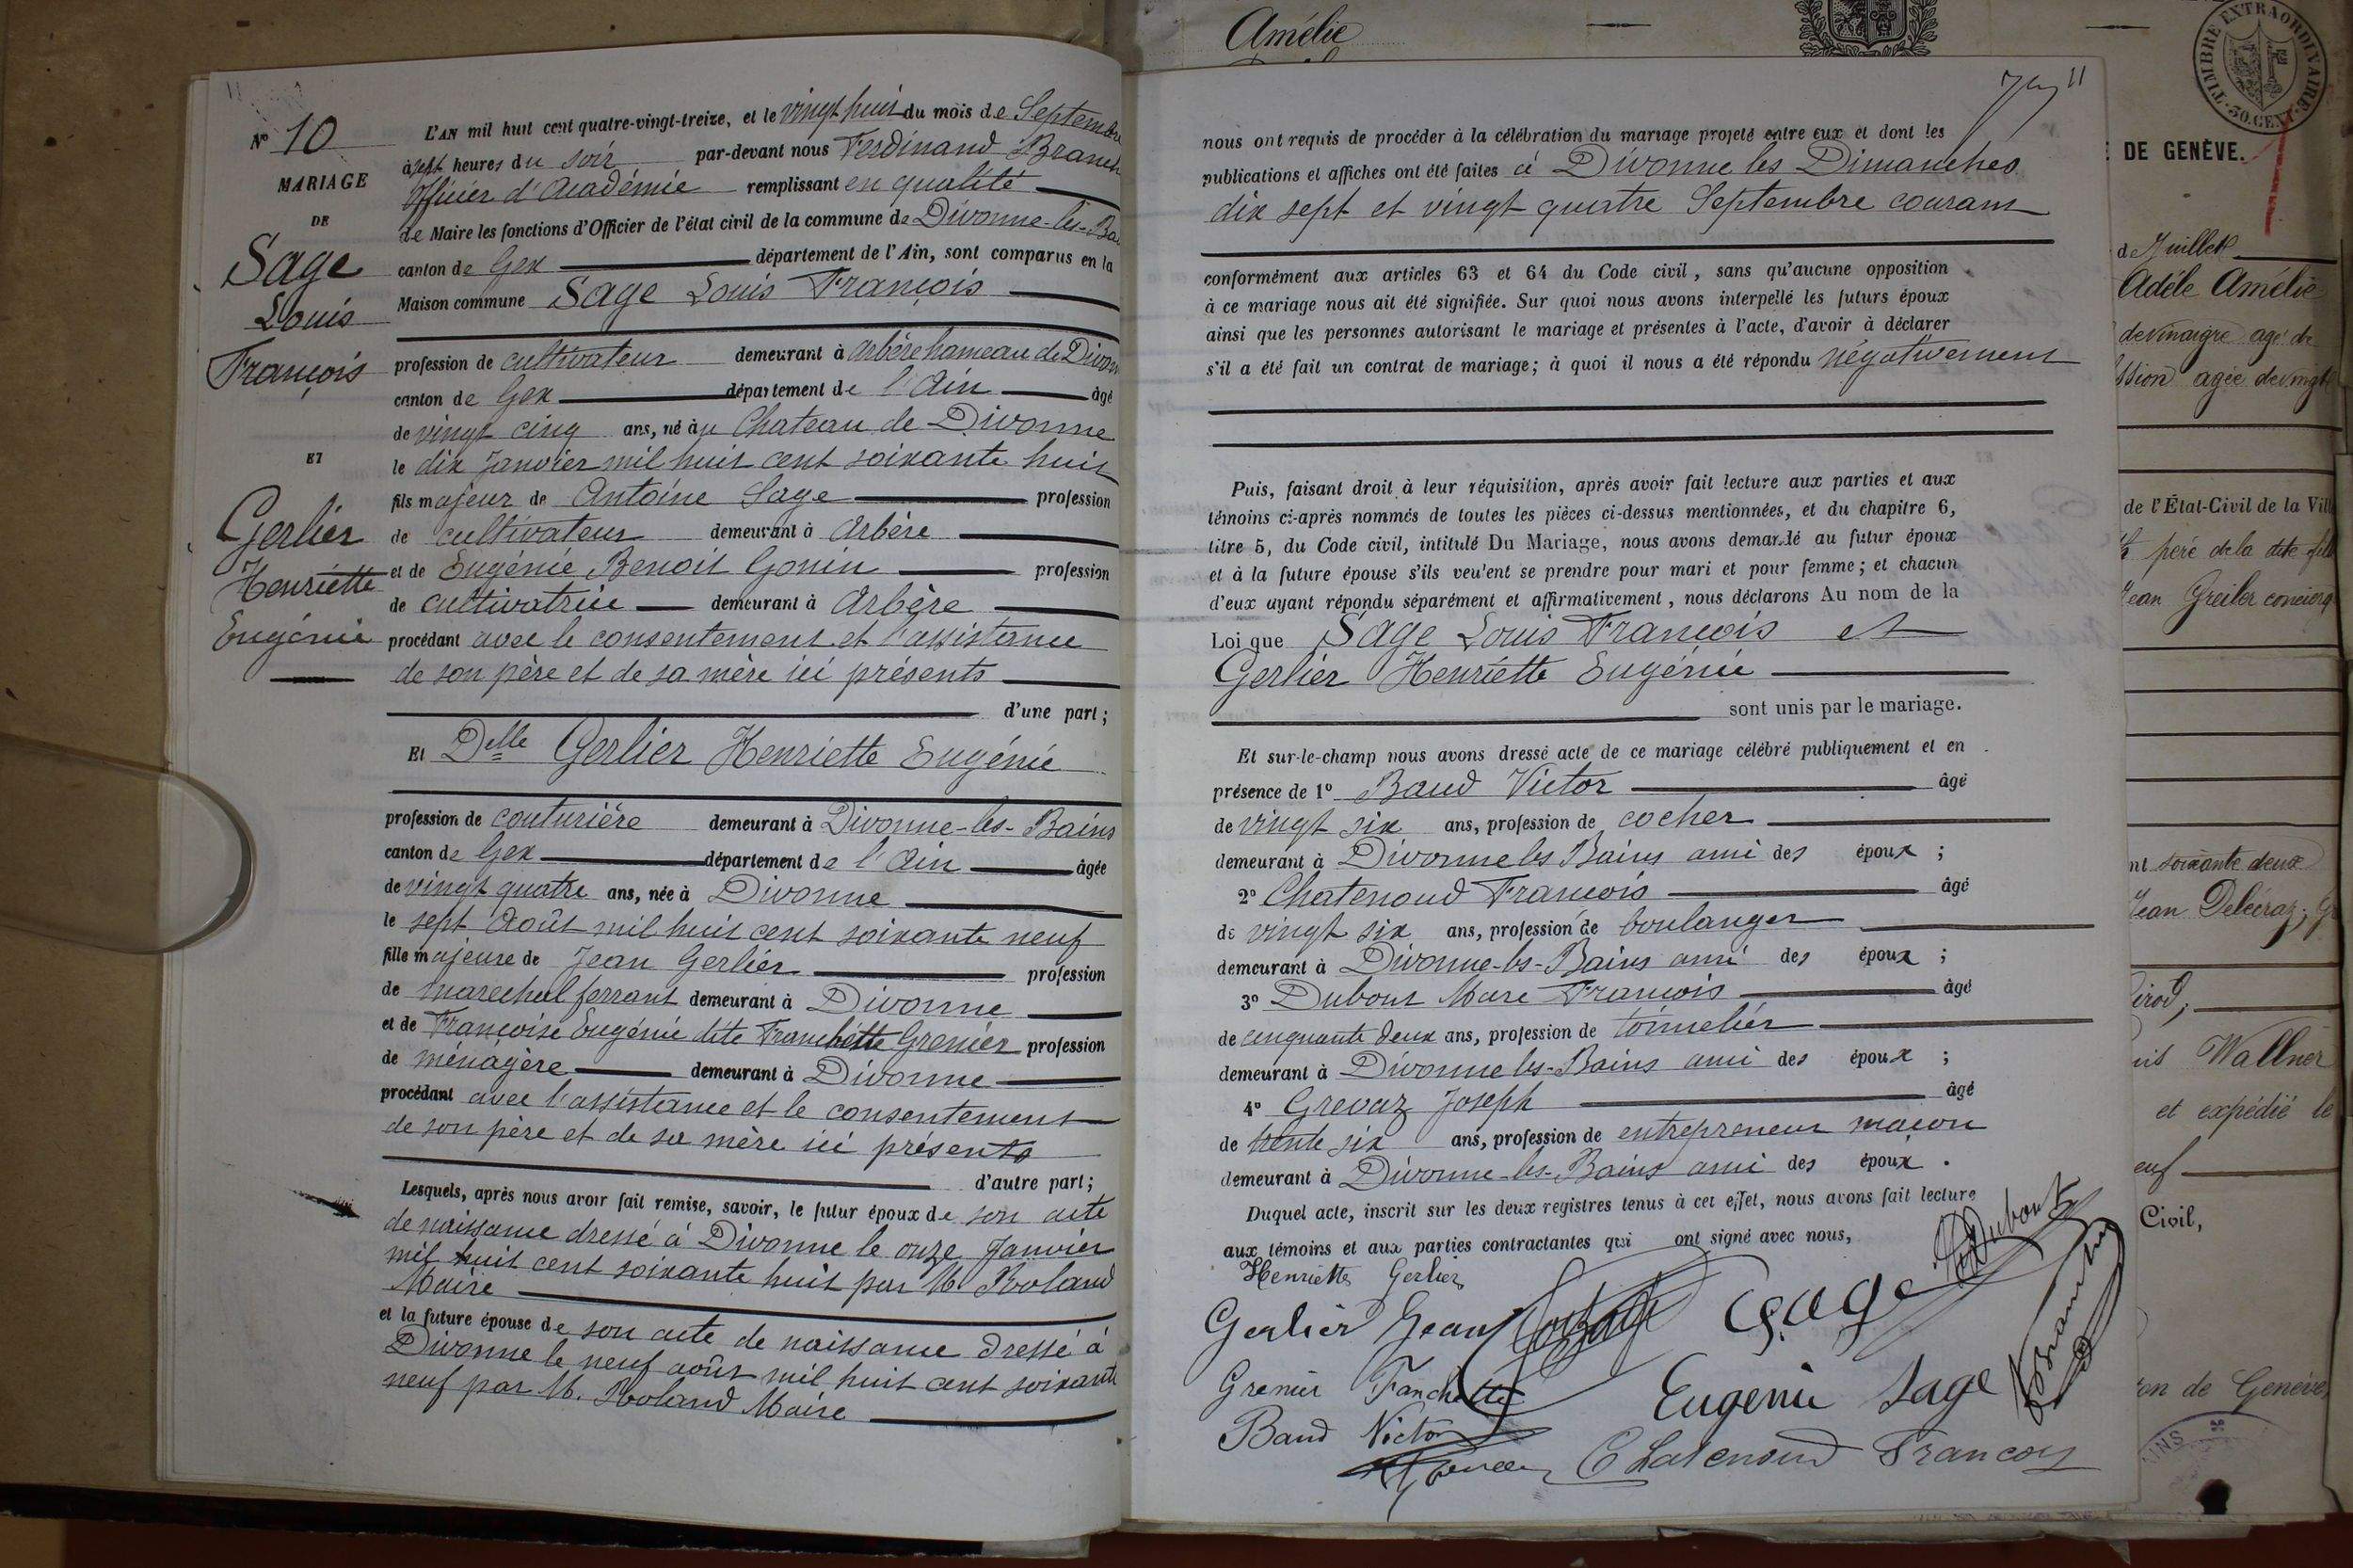 11
Nº 10
MARIAGE
DE
Sage
Louis
François
ET
Gerlier
Henriette
Eugénie
L'AN mil huit cent quatre-vingt-treize, et le vingt huit du mois de Septembre
à sept heures du soir par-devant nous Ferdinand Branch
Officier d'Académie remplissant en qualité
de Maire les fonctions d'Officier de l'état civil de la commune de Divonne-les-Ba
canton de Gex département de l'Ain, sont comparus en la
Maison commune Sage Louis François
profession de cultivateur demeurant à Arbère hameau de Divon
canton de Gex département de l'Ain âgé
de vingt cinq ans, né au Chateau de Divonne
le dix Janvier mil huit cent soixante huit
fils majeur de Antoine Sage profession
de cultivateur demeurant à Arbère
et de Eugénie Benoit Gonin profession
de cultivatrice demeurant à Arbère
procédant avec le consentement et l'assistance
de son père et de sa mère ici présents
d'une part;
Et Delle Gerlier Henriette Eugénie
profession de couturière demeurant à Divonne-les-Bains
canton de Gex département de l'Ain âgée
de vingt quatre ans, née à Divonne
le sept Août mil huit cent soixante neuf
fille majeure de Jean Gerlier profession
de marechal ferrant demeurant à Divonne
et de Françoise Eugénie dite Franchette Grenier profession
de ménagère demeurant à Divonne
procédant avec l'assistance et le consentement
de son père et de sa mère ici présents
d'autre part;
Lesquels, après nous avoir fait remise, savoir, le futur époux de son acte
de naissance dressé à Divonne le onze Janvier
mil huit cent soixante huit par M. Roland
Maire
et la future épouse de son acte de naissance dressé à
Divonne le neuf août mil huit cent soixante
neuf par M. Roland Maire
11
nous ont requis de procéder à la célébration du mariage projeté entre eux et dont les
publications et affiches ont été faites à Divonne les Dimanches
dix sept et vingt quatre Septembre courant
conformément aux articles 63 et 64 du Code civil, sans qu'aucune opposition
à ce mariage nous ait été signifiée. Sur quoi nous avons interpellé les futurs époux
ainsi que les personnes autorisant le mariage et présentes à l'acte, d'avoir à déclarer
s'il a été fait un contrat de mariage; à quoi il nous a été répondu négativement
Puis, faisant droit à leur réquisition, après avoir fait lecture aux parties et aux
témoins ci-après nommés de toutes les pièces ci-dessus mentionnées, et du chapitre 6,
titre 5, du Code civil, intitulé Du Mariage, nous avons demandé au futur époux
et à la future épouse s'ils veulent se prendre pour mari et pour femme; et chacun
d'eux ayant répondu séparément et affirmativement, nous déclarons Au nom de la
Loi que Sage Louis François et
Gerlier Henriette Eugénie
sont unis par le mariage.
Et sur-le-champ nous avons dressé acte de ce mariage célébré publiquement et en
présence de 1º Baud Victor âgé
de vingt six ans, profession de cocher
demeurant à Divonne les Bains ami des époux;
2º Chatenoud François âgé
de vingt six ans, profession de boulanger
demeurant à Divonne-les-Bains ami des époux;
3º Dubout Marc François âgé
de cinquante deux ans, profession de tonnelier
demeurant à Divonne les-Bains ami des époux;
4º Grevaz Joseph âgé
de trente six ans, profession de entrepreneur maçon
demeurant à Divonne-les-Bains ami des époux.
Duquel acte, inscrit sur les deux registres tenus à cet effet, nous avons fait lecture
aux témoins et aux parties contractantes qui ont signé avec nous,
Henriette Gerlier
Gerlier Jean Sage Dubout
Grenier Fanchette Eugenie Sage
Baud Victor
Chatenoud Francois
Amélie
TIMBRE EXTRAORDINAIRE
50.CENT.
DE GENÈVE.
de Juillet
Adèle Amélie
de vinaigre agé de
ssion agée de vingt
de l'État-Civil de la Vill
père de la dite fill
Jean Greiler concierg
nt soixante deux
Jean Delécraz;
uis Wallner
et expédié le
euf
Civil,
ton de Genève,